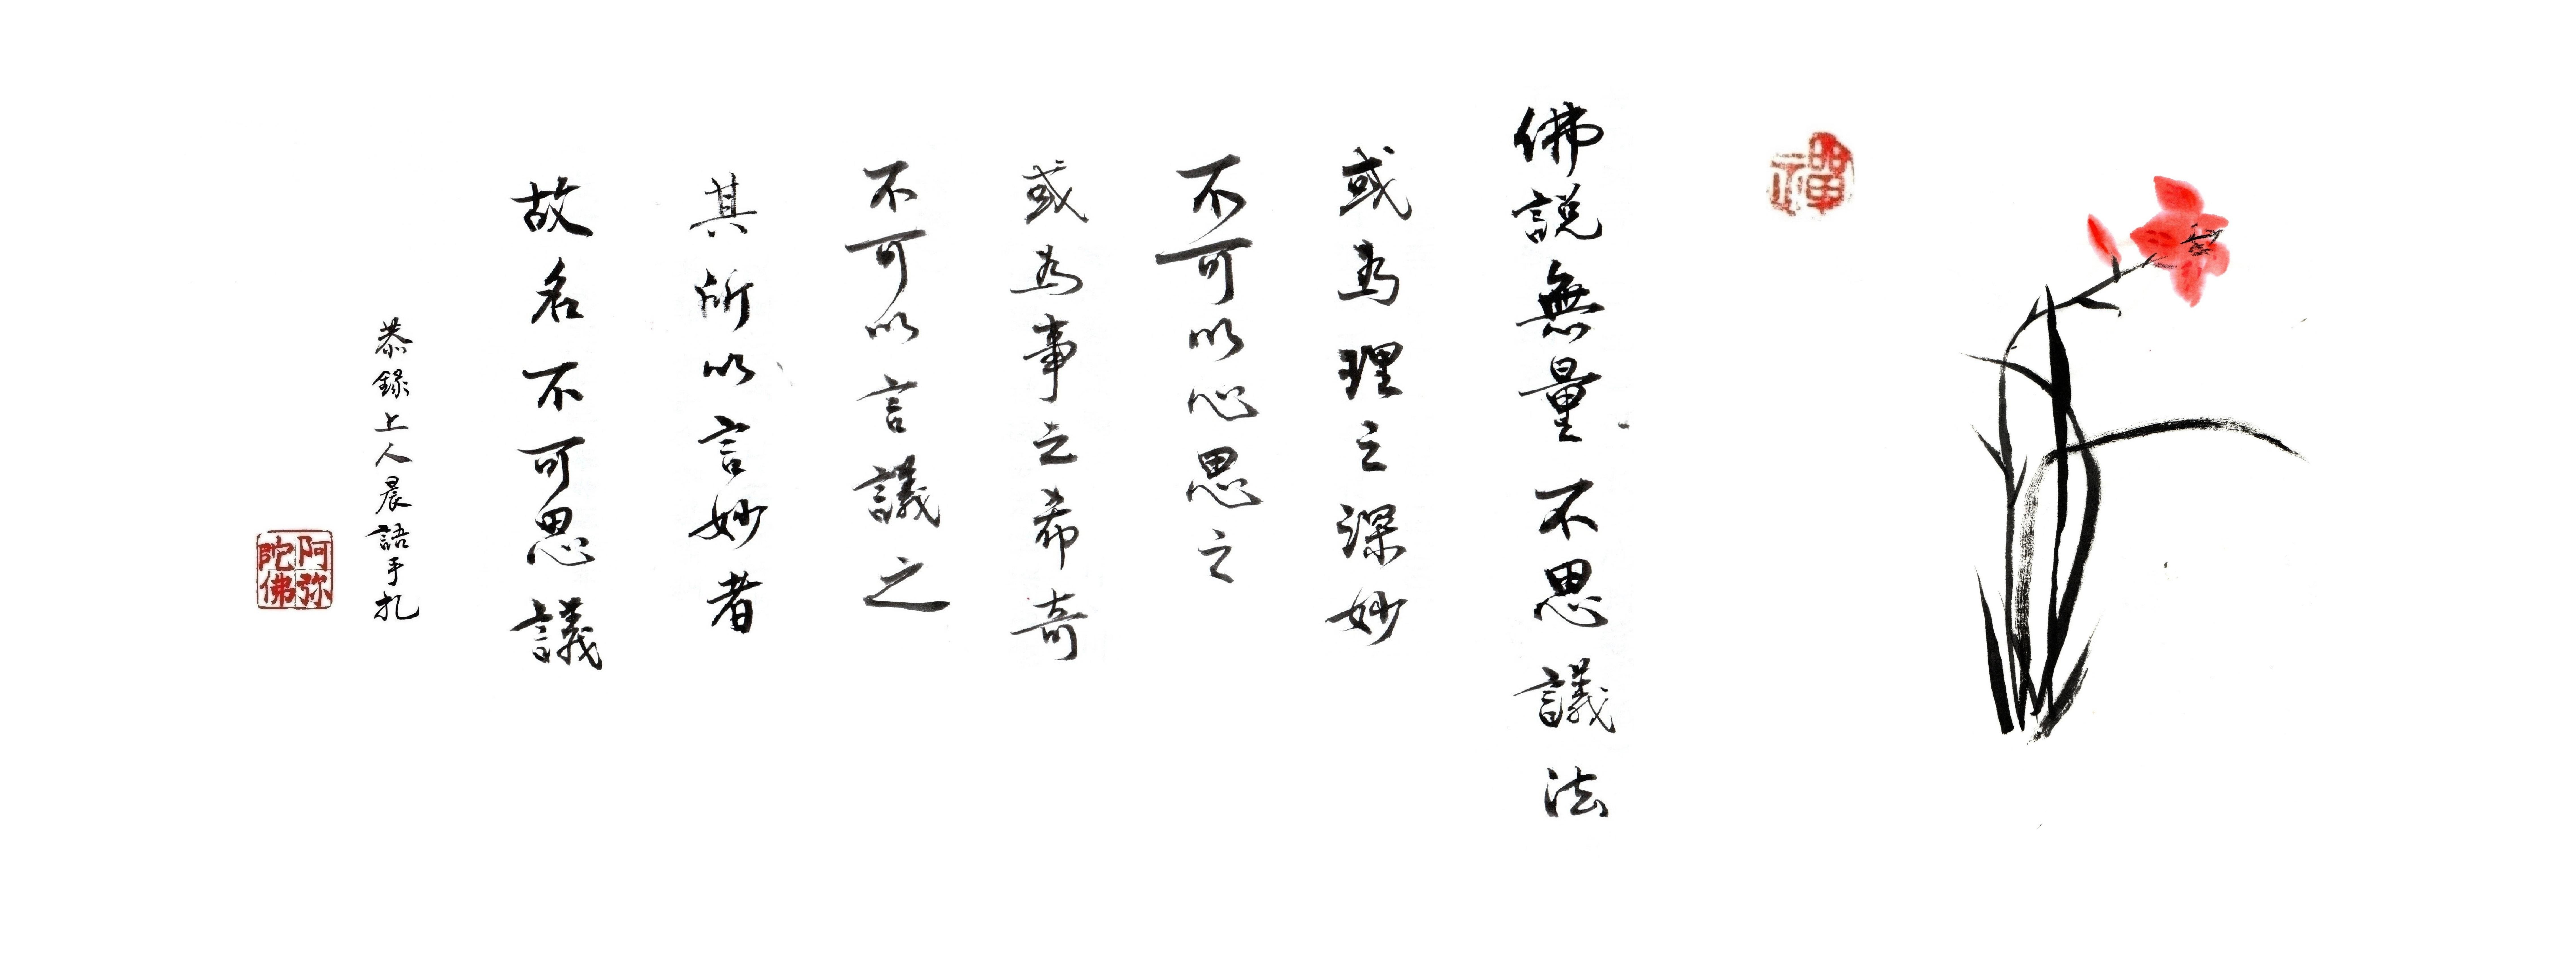 禪
佛說無量不思議法
或為理之深妙
不可以心思之
或為事之希奇
不可以言議之
其所以言妙者
故名不可思議
恭錄上人晨語手札
阿弥陀佛